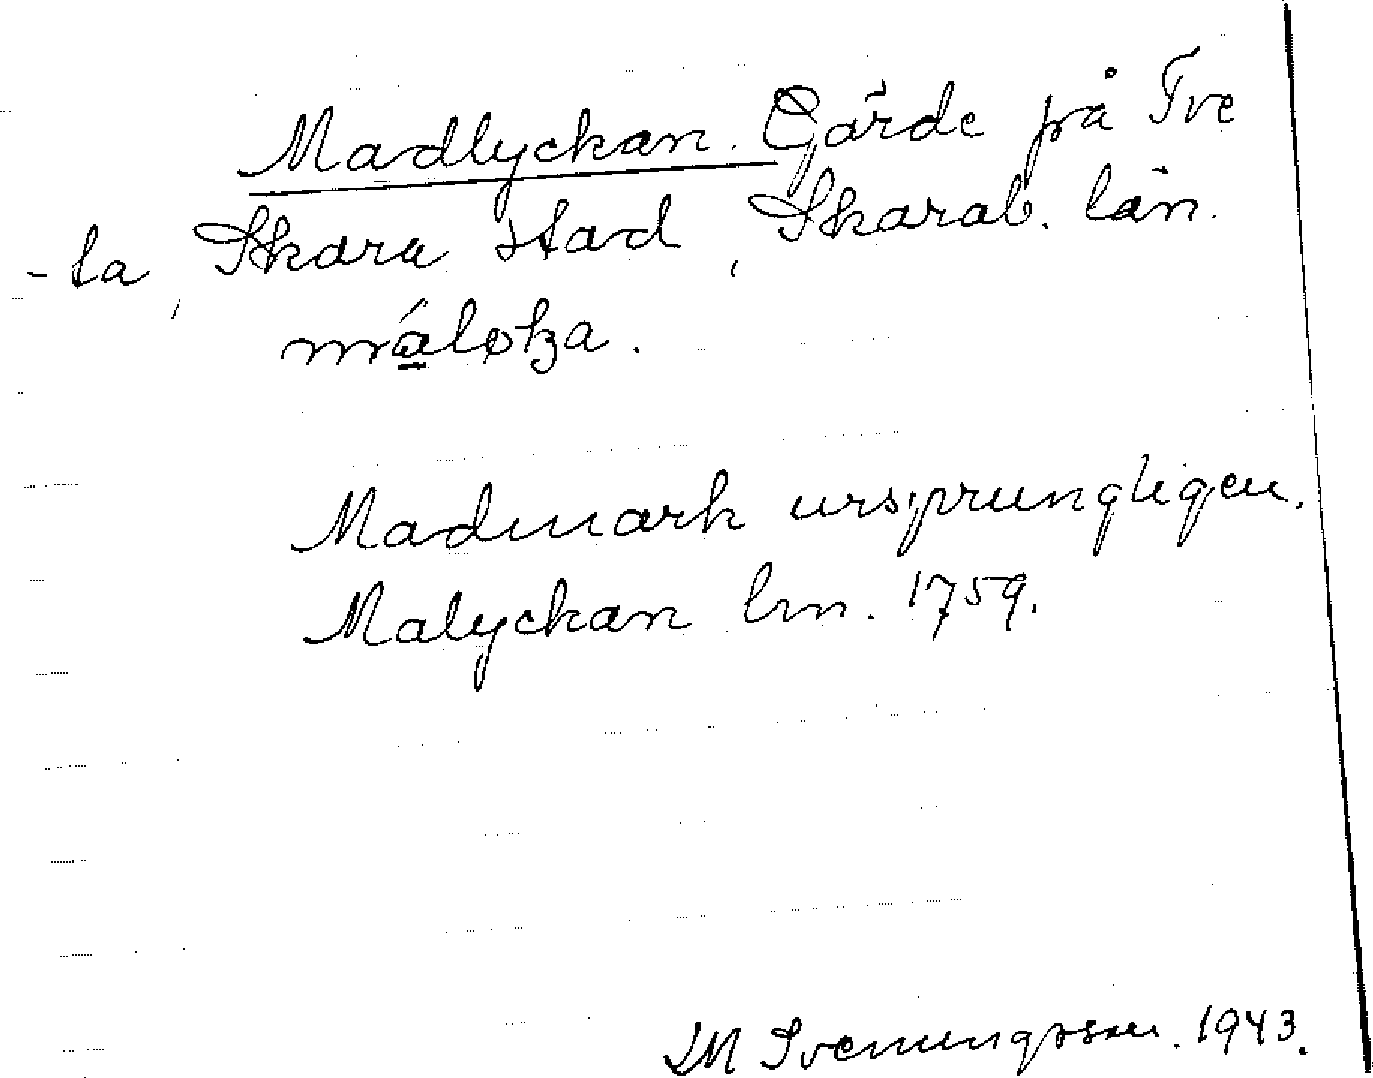 Madlyckan. Gärde på Tve
-ta, Skara stad, Skarab. län.
Madmark ursprungligen.
Malyckan lm. 1759.
IM Svenungsson. 1943.